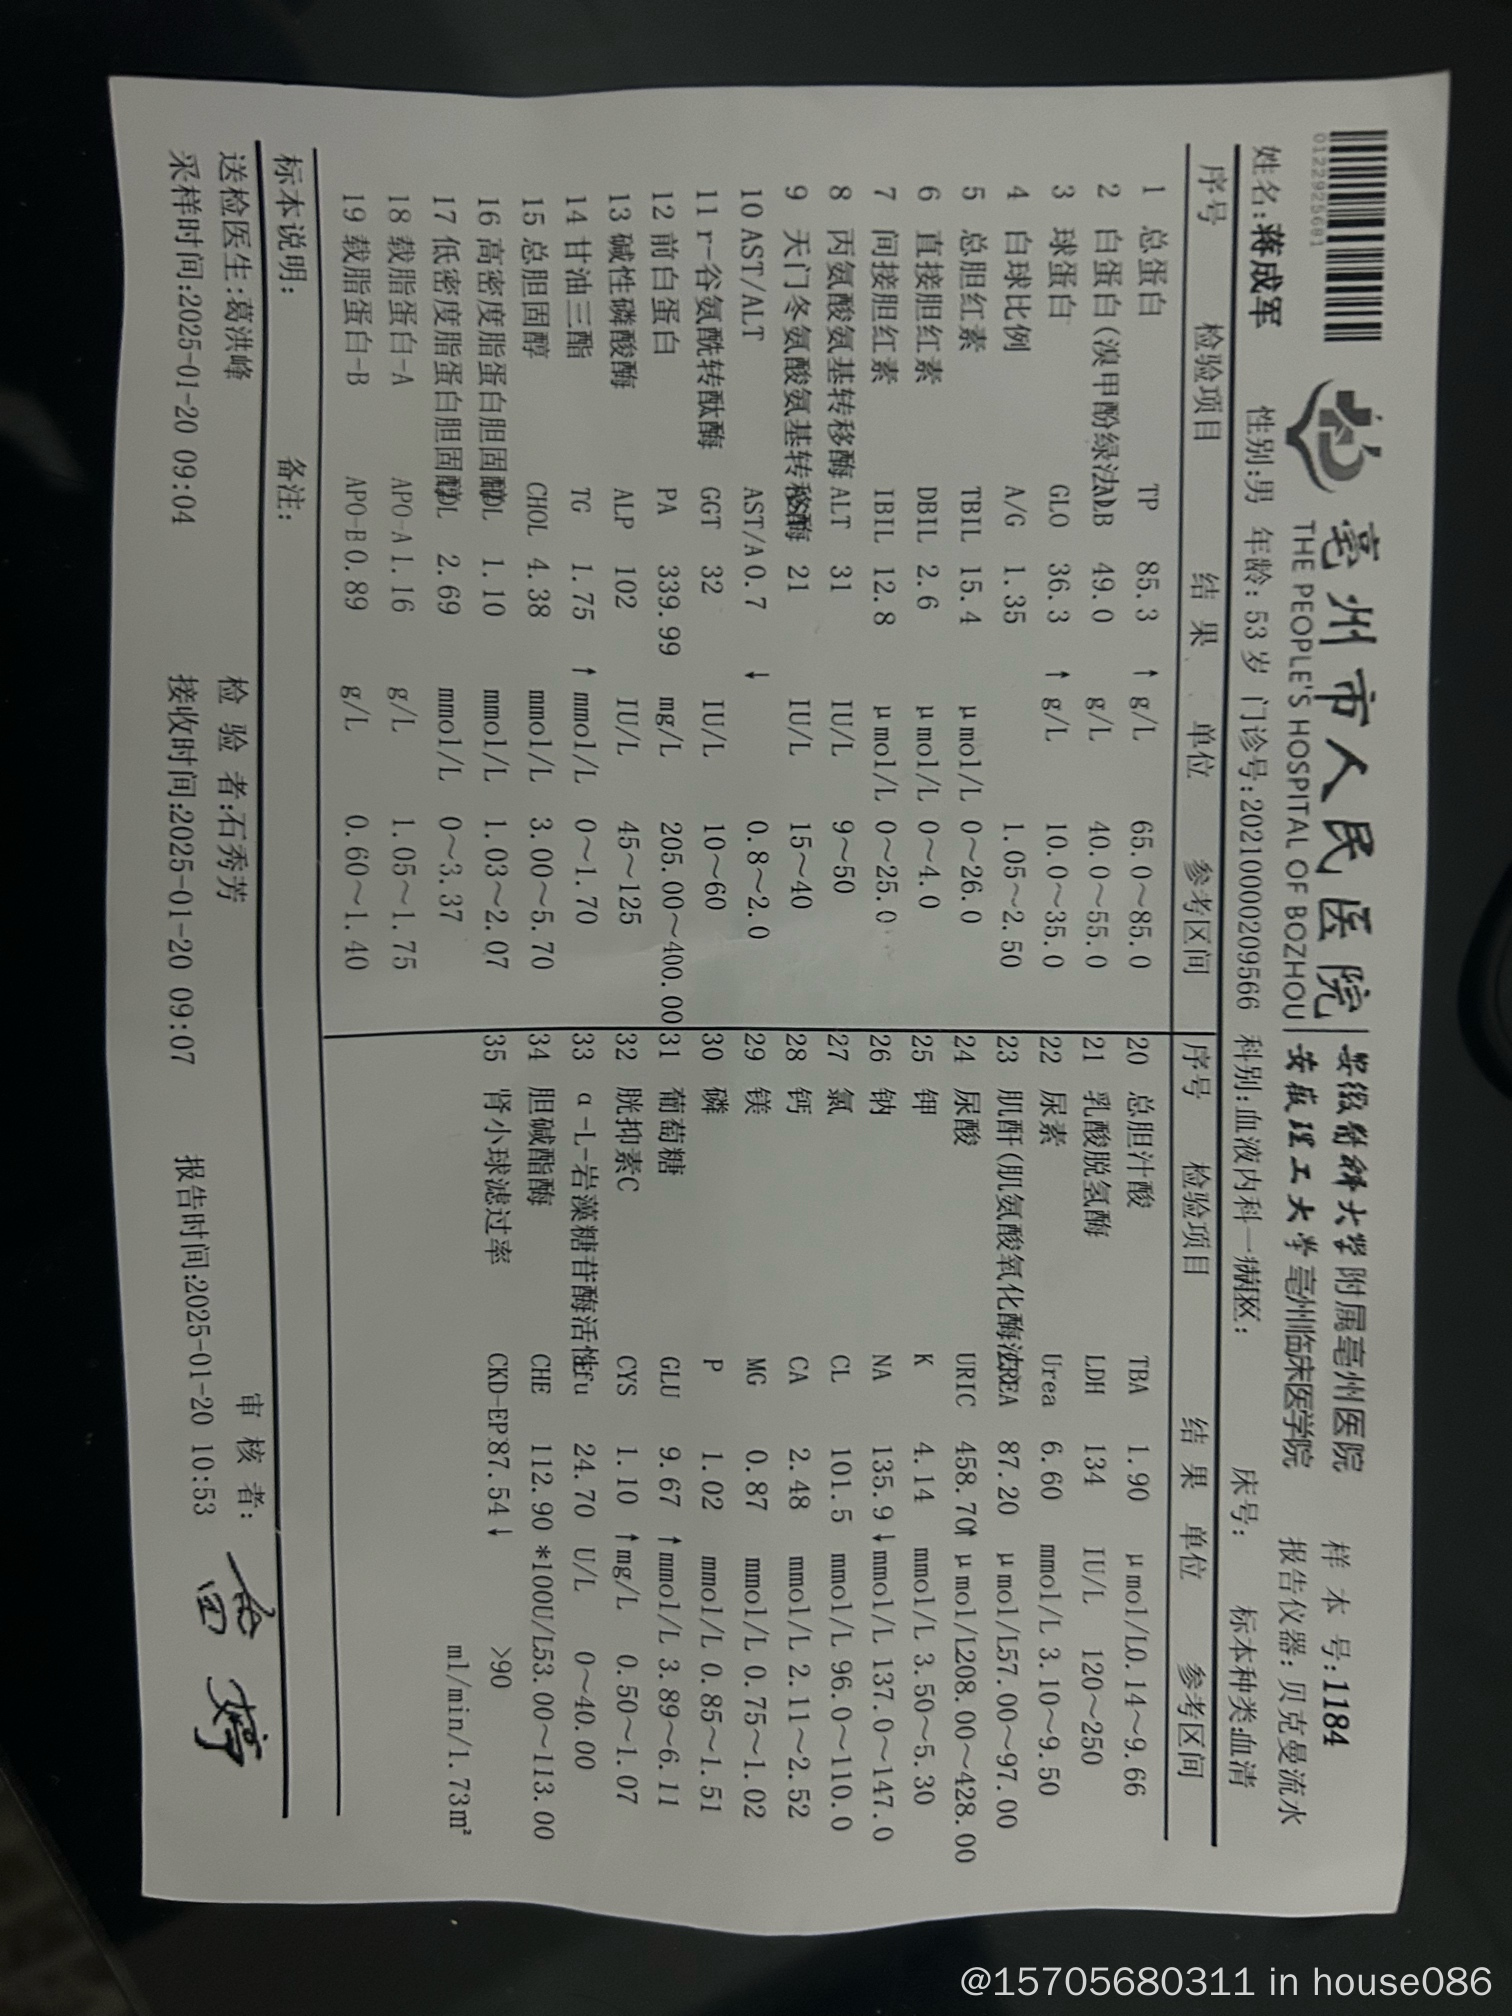 0122925681
亳州市人民医院
THE PEOPLE'S HOSPITAL OF BOZHOU
安徽医科大学附属亳州医院
安徽理工大学亳州临床医学院
样 本 号:1184
报告仪器: 贝克曼流水
姓名:蒋成军 性别:男 年龄: 53 岁 门诊号:2021000209566 科别:血液内科一病区: 床号: 标本种类:血清
序号 检验项目 结 果 单位 参考区间
1 总蛋白 TP 85.3 ↑ g/L 65.0~85.0
2 白蛋白(溴甲酚绿法)ALB 49.0 g/L 40.0~55.0
3 球蛋白 GLO 36.3 ↑ g/L 10.0~35.0
4 白球比例 A/G 1.35 1.05~2.50
5 总胆红素 TBIL 15.4 μmol/L 0~26.0
6 直接胆红素 DBIL 2.6 μmol/L 0~4.0
7 间接胆红素 IBIL 12.8 μmol/L 0~25.0
8 丙氨酸氨基转移酶 ALT 31 IU/L 9~50
9 天门冬氨酸氨基转移酶 21 IU/L 15~40
10 AST/ALT AST/A 0.7 ↓ 0.8~2.0
11 r-谷氨酰转酞酶 GGT 32 IU/L 10~60
12 前白蛋白 PA 339.99 mg/L 205.00~400.00
13 碱性磷酸酶 ALP 102 IU/L 45~125
14 甘油三酯 TG 1.75 ↑ mmol/L 0~1.70
15 总胆固醇 CHOL 4.38 mmol/L 3.00~5.70
16 高密度脂蛋白胆固醇 DL 1.10 mmol/L 1.03~2.07
17 低密度脂蛋白胆固醇 DL 2.69 mmol/L 0~3.37
18 载脂蛋白-A APO-A 1.16 g/L 1.05~1.75
19 载脂蛋白-B APO-B 0.89 g/L 0.60~1.40
序号 检验项目 结 果 单位 参考区间
20 总胆汁酸 TBA 1.90 μmol/L 0.14~9.66
21 乳酸脱氢酶 LDH 134 IU/L 120~250
22 尿素 Urea 6.60 mmol/L 3.10~9.50
23 肌酐(肌氨酸氧化酶法)REA 87.20 μmol/L 57.00~97.00
24 尿酸 URIC 458.70↑ μmol/L 208.00~428.00
25 钾 K 4.14 mmol/L 3.50~5.30
26 钠 NA 135.9 ↓ mmol/L 137.0~147.0
27 氯 CL 101.5 mmol/L 96.0~110.0
28 钙 CA 2.48 mmol/L 2.11~2.52
29 镁 MG 0.87 mmol/L 0.75~1.02
30 磷 P 1.02 mmol/L 0.85~1.51
31 葡萄糖 GLU 9.67 ↑ mmol/L 3.89~6.11
32 胱抑素C CYS 1.10 ↑ mg/L 0.50~1.07
33 α-L-岩藻糖苷酶活性 fu 24.70 U/L 0~40.00
34 胆碱酯酶 CHE 112.90 *100U/L 53.00~113.00
35 肾小球滤过率 CKD-EP 87.54 ↓ >90
ml/min/1.73m²
标本说明: 备注:
送检医生:葛洪峰 检 验 者:石秀芳 审 核 者:
采样时间:2025-01-20 09:04 接收时间:2025-01-20 09:07 报告时间:2025-01-20 10:53
@15705680311 in house086